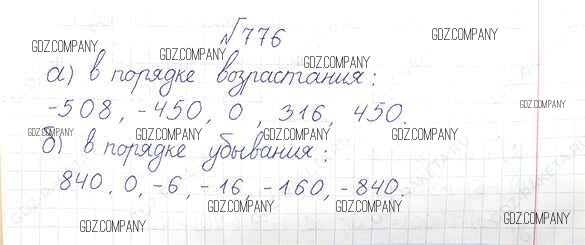 №776
а) в порядке возрастания:
-508, -450, 0, 316, 450.
б) в порядке убывания:
840, 0, -6, -16, -160, -840.
GDZ.COMPANY
GDZ.COMPANY
GDZ.COMPANY
GDZ.COMPANY
GDZ.COMPANY
GDZ.COMPANY
GDZ.COMPANY
GDZ.COMPANY
GDZ.COMPANY
GDZ.COMPANY
GDZ.COMPANY
GDZ.COMPANY
GDZ.COMPANY
GDZ.COMPANY